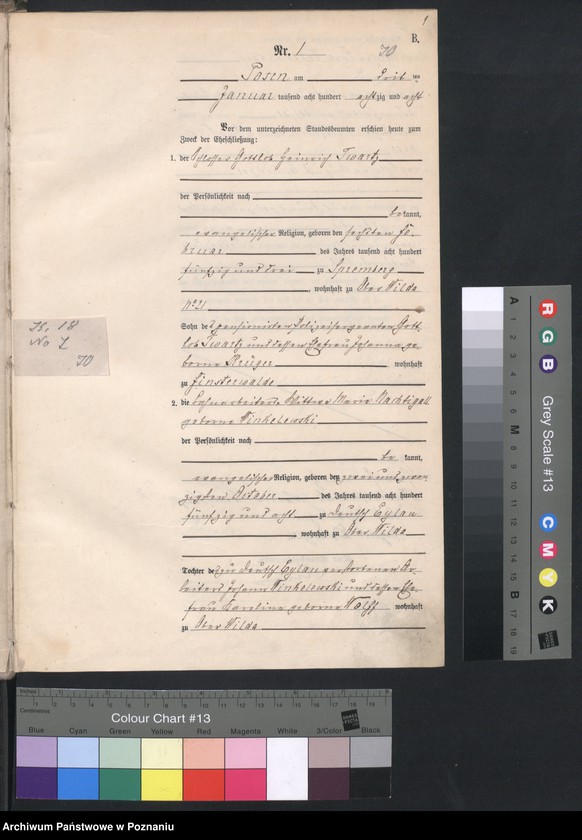 1
B.
Nr. 1 70
Posen am drit ten
Januar tausend acht hundert achtzig und acht
Vor dem unterzeichneten Standesbeamten erschien heute zum
Zweck der Eheschließung:
1. der Schlosser Gottlob Heinrich Twartz
der Persönlichkeit nach
be kannt,
evangelischer Religion, geboren den sechsten Fe-
bruar des Jahres tausend acht hundert
fünfzig und drei zu Spremberg
, wohnhaft zu Ober Wilda
No 21
Sohn des pensionirten Polizeisergeanten Gott-
lob Twartz und dessen Ehefrau Johanna ge-
borne Krüger wohnhaft
zu Finsterwalde
2. die Wittwe Marie Nachtigall
geborne Winkelewski
der Persönlichkeit nach
be kannt,
evangelischer Religion, geboren den zwei und zwan-
zigsten Oktober des Jahres tausend acht hundert
fünfzig und acht zu Deutsch Eylau
, wohnhaft zu Ober Wilda
Tochter des zu Deutsch Eylau verstorbenen Ar-
beiters Johann Winkelewski und dessen Ehe-
frau Karoline geborne Wolff wohnhaft
zu Ober Wilda
18
No 1
70
Inches 1 2 3 4 5 6 7 8
Centimetres 1 2 3 4 5 6 7 8 9 10 11 12 13 14 15 16 17 18 19
Colour Chart #13
Blue Cyan Green Yellow Red Magenta White 3/Color Black
Grey Scale #13
R G B C M Y K
A 1 2 3 4 5 6 M 8 9 10 11 12 13 14 15 B 17 18 19
Archiwum Państwowe w Poznaniu